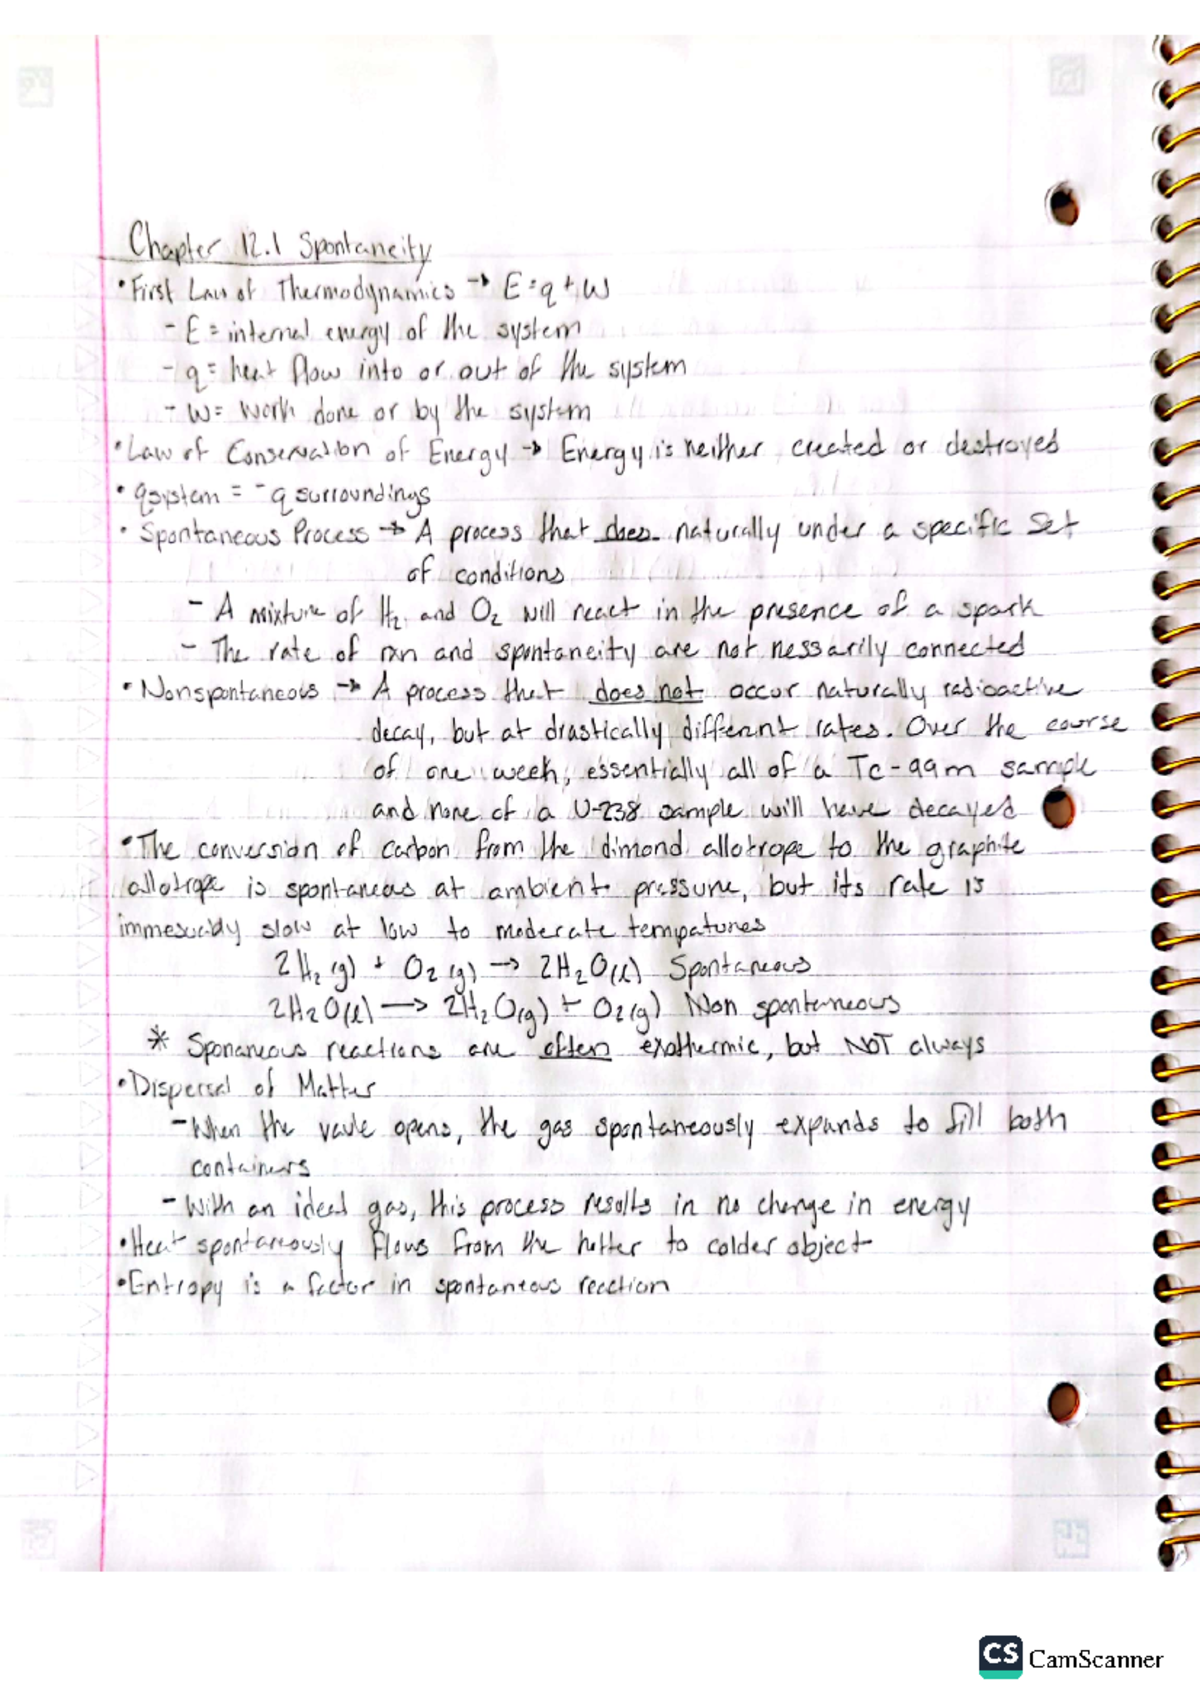 Chapter 12.1 Spontaneity
• First Law of Thermodynamics → E = q + W
- E = internal energy of the system
- q = heat flow into or out of the system
- W = Work done or by the system
• Law of Conservation of Energy → Energy is neither created or destroyed
• qsystem = -q surroundings
• Spontaneous Process → A process that does naturally under a specific Set
of conditions
- A mixture of H2 and O2 will react in the presence of a spark
- The rate of rxn and spontaneity are not nessarily connected
• Nonspontaneous → A process that does not occur naturally radioactive
decay, but at drastically different rates. Over the course
of one week, essentially all of a Tc-99m sample
and none of a U-238 sample will have decayed
• The conversion of carbon from the dimond allotrope to the graphite
allotrope is spontaneous at ambient pressure, but its rate is
slow at low to moderate
2H2 (g) + O2 (g) → 2H2O(l) Spontaneous
2H2O(l) → 2H2O(g) + O2(g) Non spontaneous
* Sponaneous reactions are often exothermic, but NOT always
• Dispersal of Matter
- When the opens, the gas spontaneously expands to fill both
containers
- With an ideal gas, this process results in no change in energy
• Heat spontaneously flows from the hotter to colder object
• Entropy is a factor in spontaneous reaction
CS CamScanner